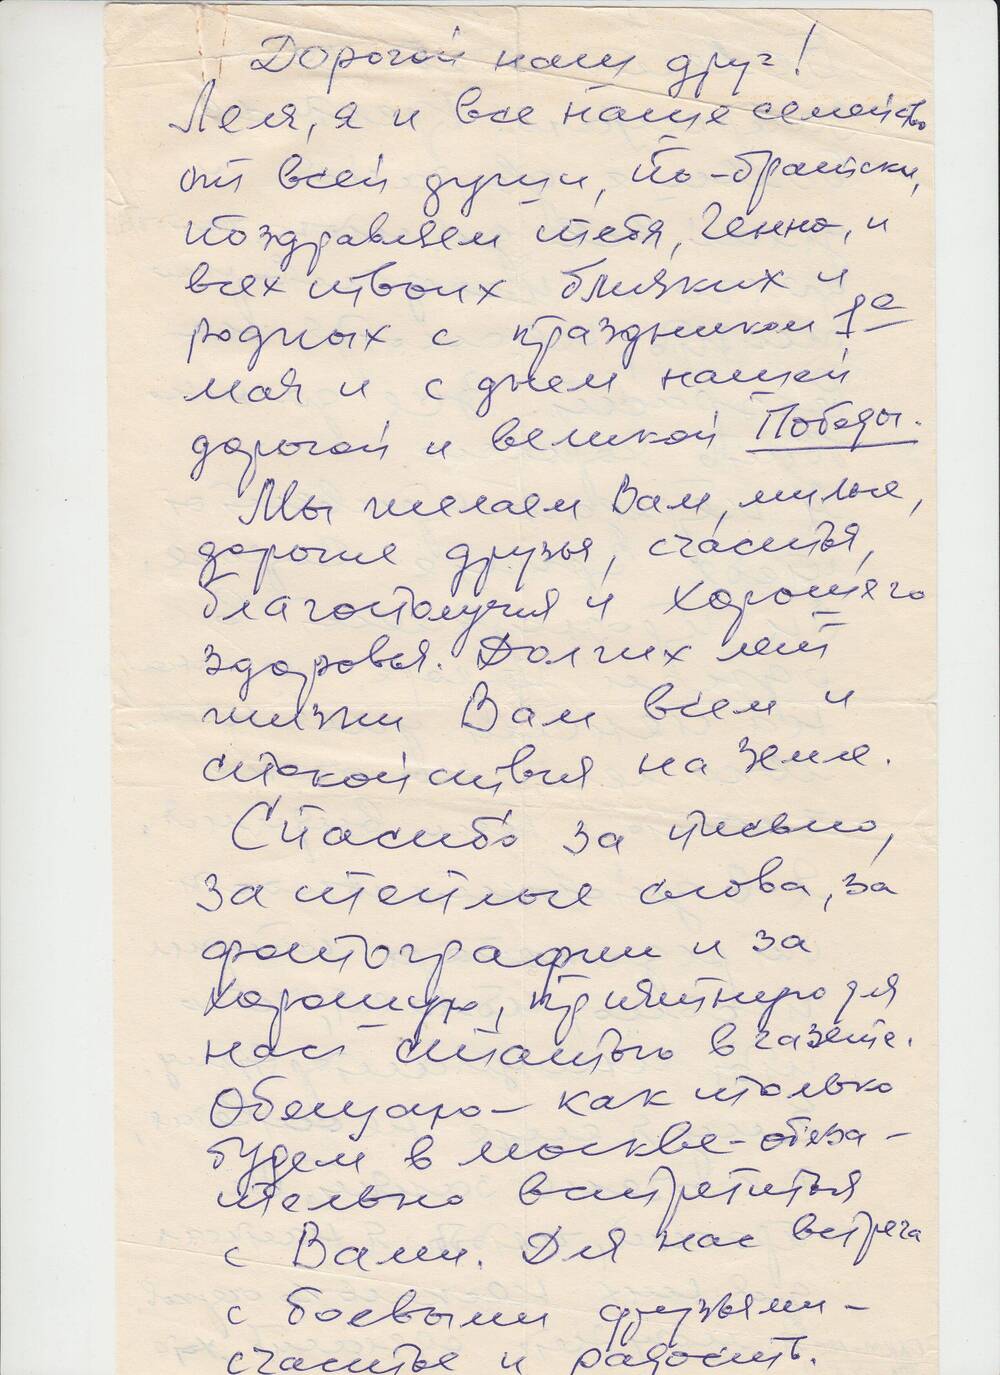 Дорогой наш друг!
Леля, я и все наше семейство
от всей души, по-братски,
поздравляем тебя, Генно, и
всех твоих близких и
родных с праздником 1е
мая и с днем нашей
дорогой и великой Победы.
Мы желаем Вам, милые,
дорогие друзья, счастья,
благополучия и хорошего
здоровья. Долгих лет
жизни Вам всем и
спокойствия на земле.
Спасибо за письмо,
за теплые слова, за
фотографии и за
хорошую, приятную для
нас статью в газете.
Обещаю - как только
будем в москве - обяза-
тельно встретиться
с Вами. Для нас встреча
с боевыми друзьями -
счастье и радость.